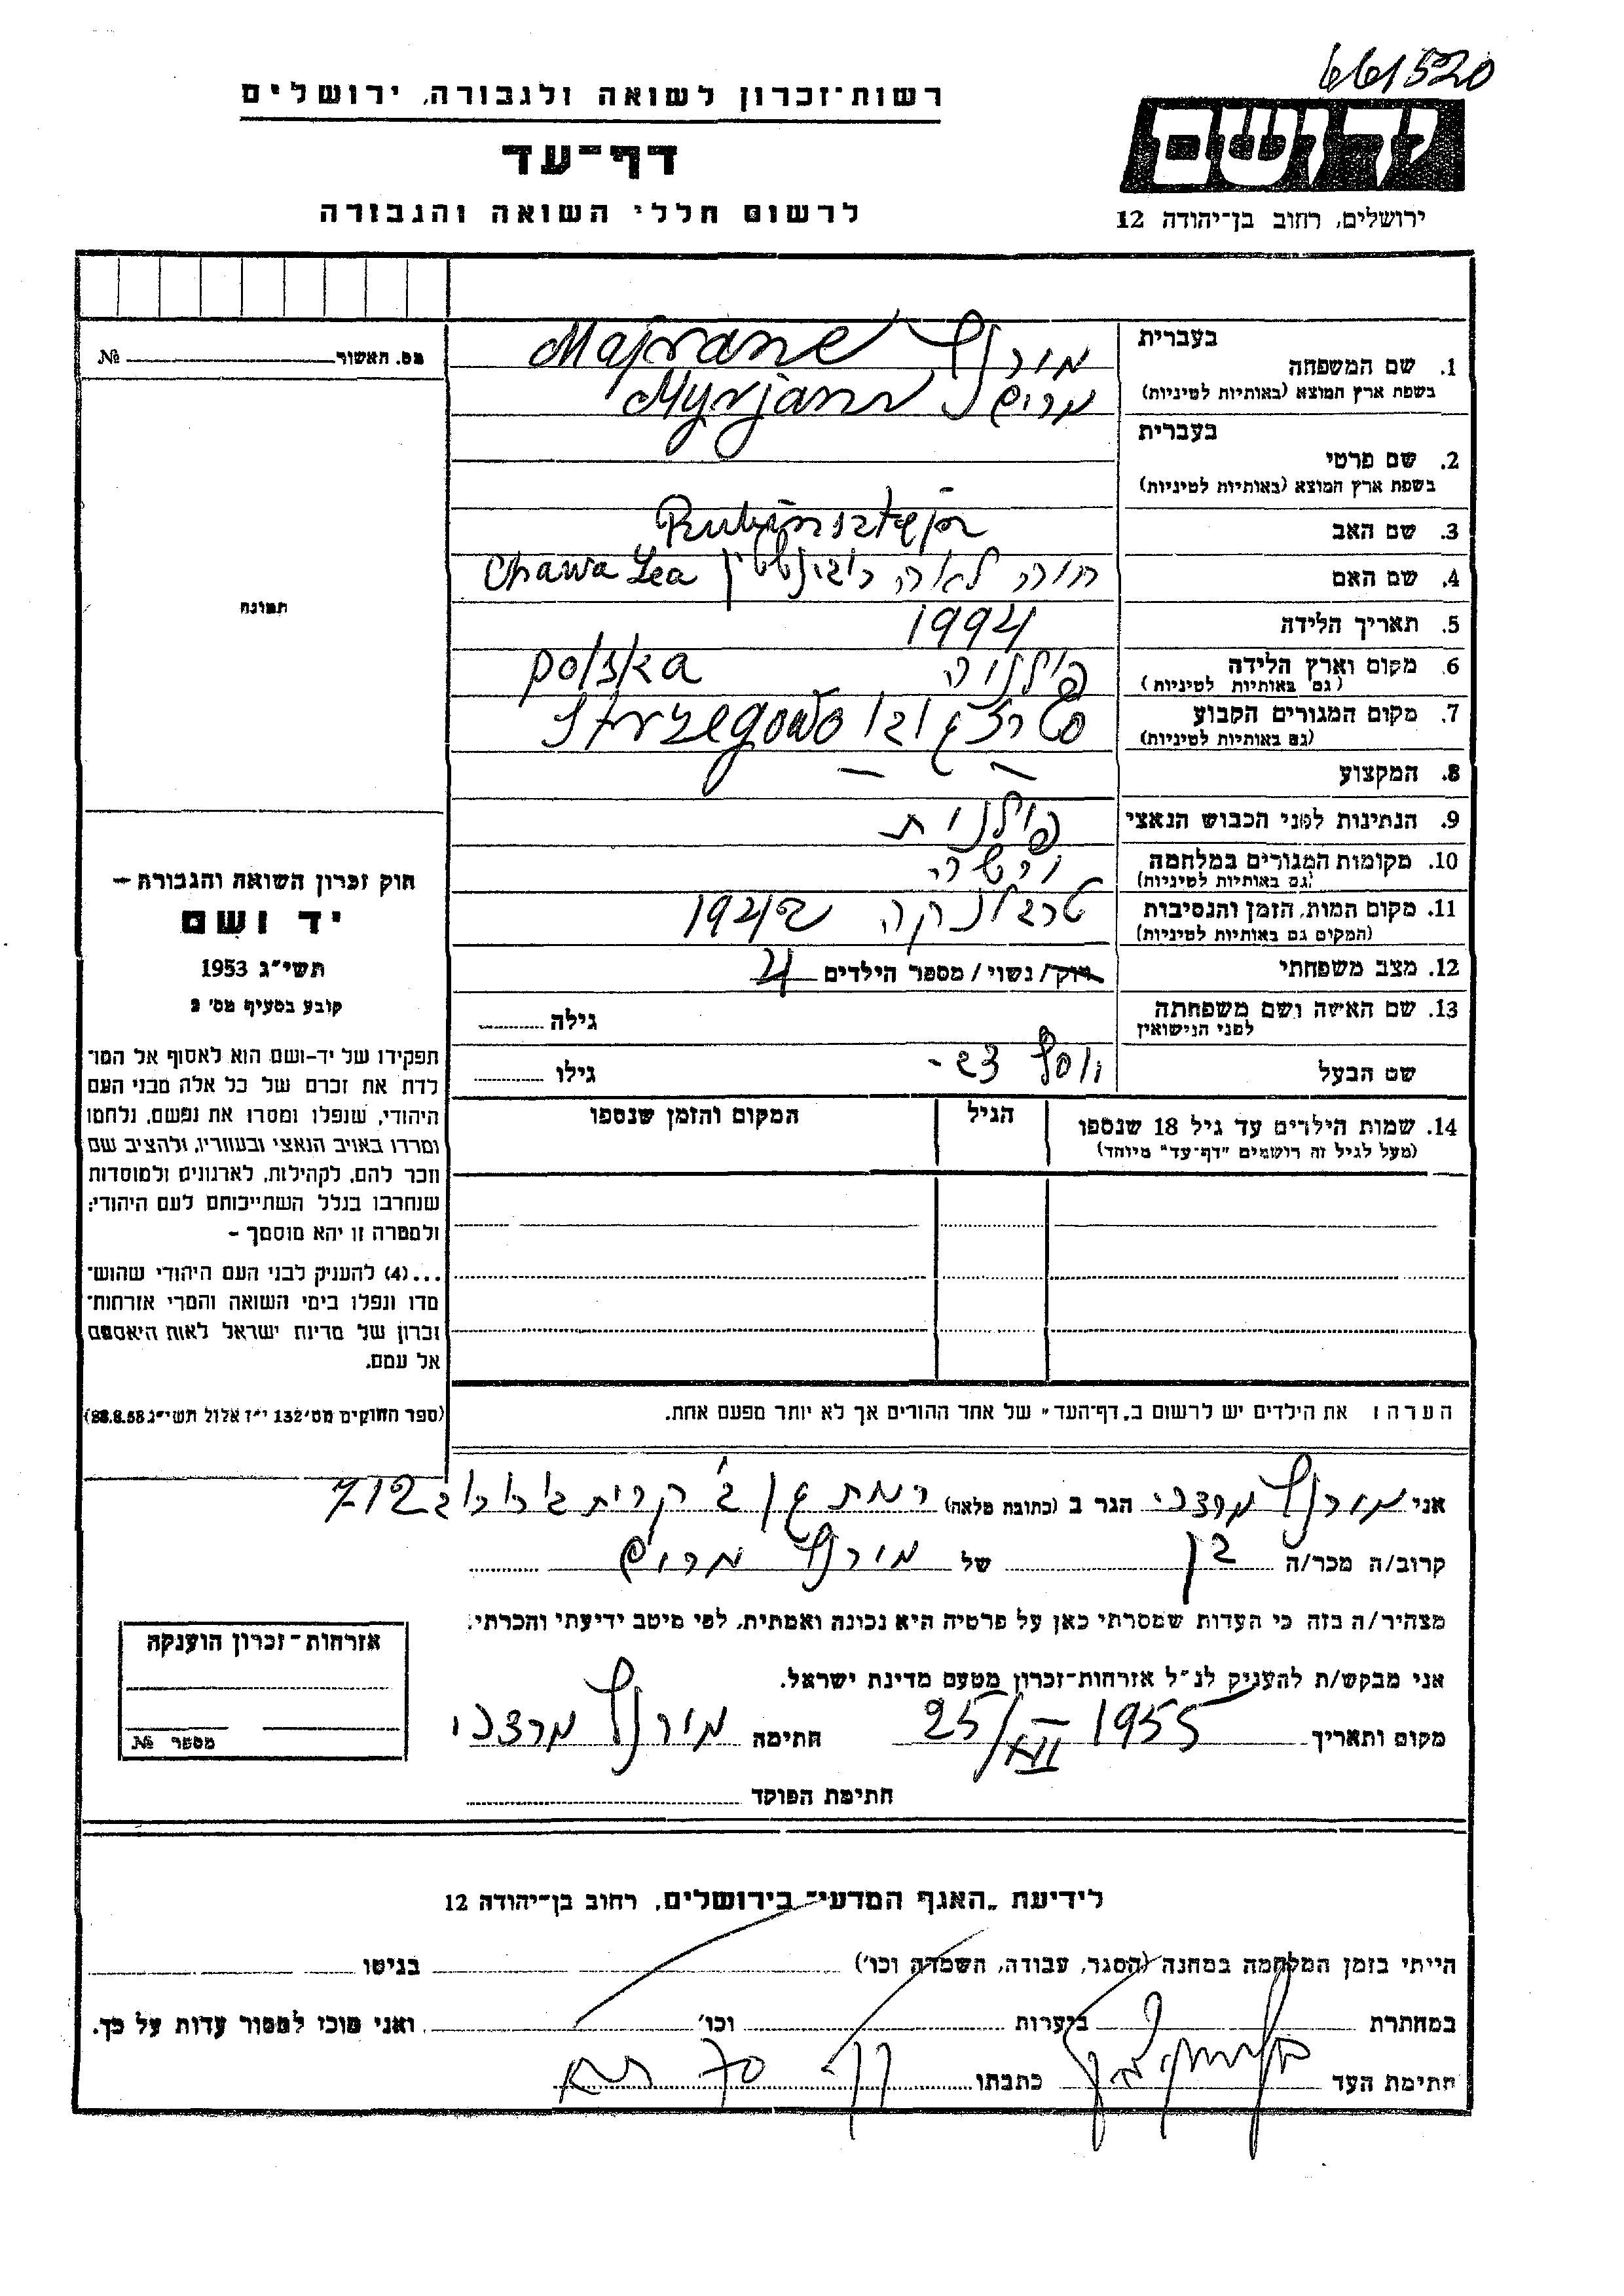 661520
רשות־זכרון לשואה ולגבורה, ירושלים
דף־עד
לרשום חללי השואה והגבורה
ידושם
ירושלים, רחוב בן־יהודה 12
מס. האשור № 
בעברית
1. שם המשפחה
בשפת ארץ המוצא (באותיות לטיניות)
מורנץ
מרים Myrjam
בעברית
2. שם פרטי
בשפת ארץ המוצא (באותיות לטיניות)
3. שם האב
Rubinsztejn
4. שם האם חוה לאה רובינשטיין Chawa Lea
5. תאריך הלידה 1994
6. מקום וארץ הלידה פולניה polska
(גם באותיות לטיניות)
7. מקום המגורים הקבוע Strzegowo
(גם באותיות לטיניות)
8. המקצוע — —
9. הנתינות לפני הכבוש הנאצי פולנית
10. מקומות המגורים במלחמה ורשה
(גם באותיות לטיניות)
11. מקום המות, הזמן והנסיבות טרבלינקה 1942
(המקום גם באותיות לטיניות)
12. מצב משפחתי רוק/נשוי/מספר הילדים 4
13. שם האשה ושם משפחתה גילה
לפני הנישואין
שם הבעל יוסף גילו
14. שמות הילדים עד גיל 18 שנספו הגיל המקום והזמן שנספו
(מעל לגיל זה רושמים "דף־עד" מיוחד)
הערה: את הילדים יש לרשום ב„דף־העד" של אחד ההורים אך לא יותר מפעם אחת.
תמונה
חוק זכרון השואה והגבורה —
יד ושם
תשי"ג 1953
קובע בסעיף מס' 2
תפקידו של יד-ושם הוא לאסוף אל המו־
לדת את זכרם של כל אלה מבני העם
היהודי, שנפלו ומסרו את נפשם, נלחמו
ומרדו באויב הנאצי ובעוזריו, ולהציב שם
וזכר להם, לקהילות, לארגונים ולמוסדות
שנחרבו בגלל השתייכותם לעם היהודי;
ולמטרה זו יהא מוסמך -
...(4) להעניק לבני העם היהודי שהוש־
מדו ונפלו בימי השואה והמרי אזרחות־
זכרון של מדינת ישראל לאות היאספם
אל עמם.
(ספר החוקים מס' 132 י"ז אלול תשי"ג 28.8.53)
אני מורנץ מרדכי הגר ב (כתובת מלאה) רמת גן ג' קרית בורוכוב 712
קרוב/ה מכר/ה בן של מורנץ מרים
מצהיר/ה בזה כי העדות שמסרתי כאן על פרטיה היא נכונה ואמתית, לפי מיטב ידיעתי והכרתי.
אני מבקש/ת להעניק לנ"ל אזרחות־זכרון מטעם מדינת ישראל.
מקום ותאריך 25/XII 1955 חתימה מורנץ מרדכי
חתימת הפוקד
אזרחות־זכרון הוענקה
מספר №
לידיעת „האגף המדעי" בירושלים, רחוב בן־יהודה 12
הייתי בזמן המלחמה במחנה (הסגר, עבודה, השמדה וכו') בגיטו
במחתרת ביערות וכו' ואני מוכן למסור עדות על כך.
חתימת העד כתבתו